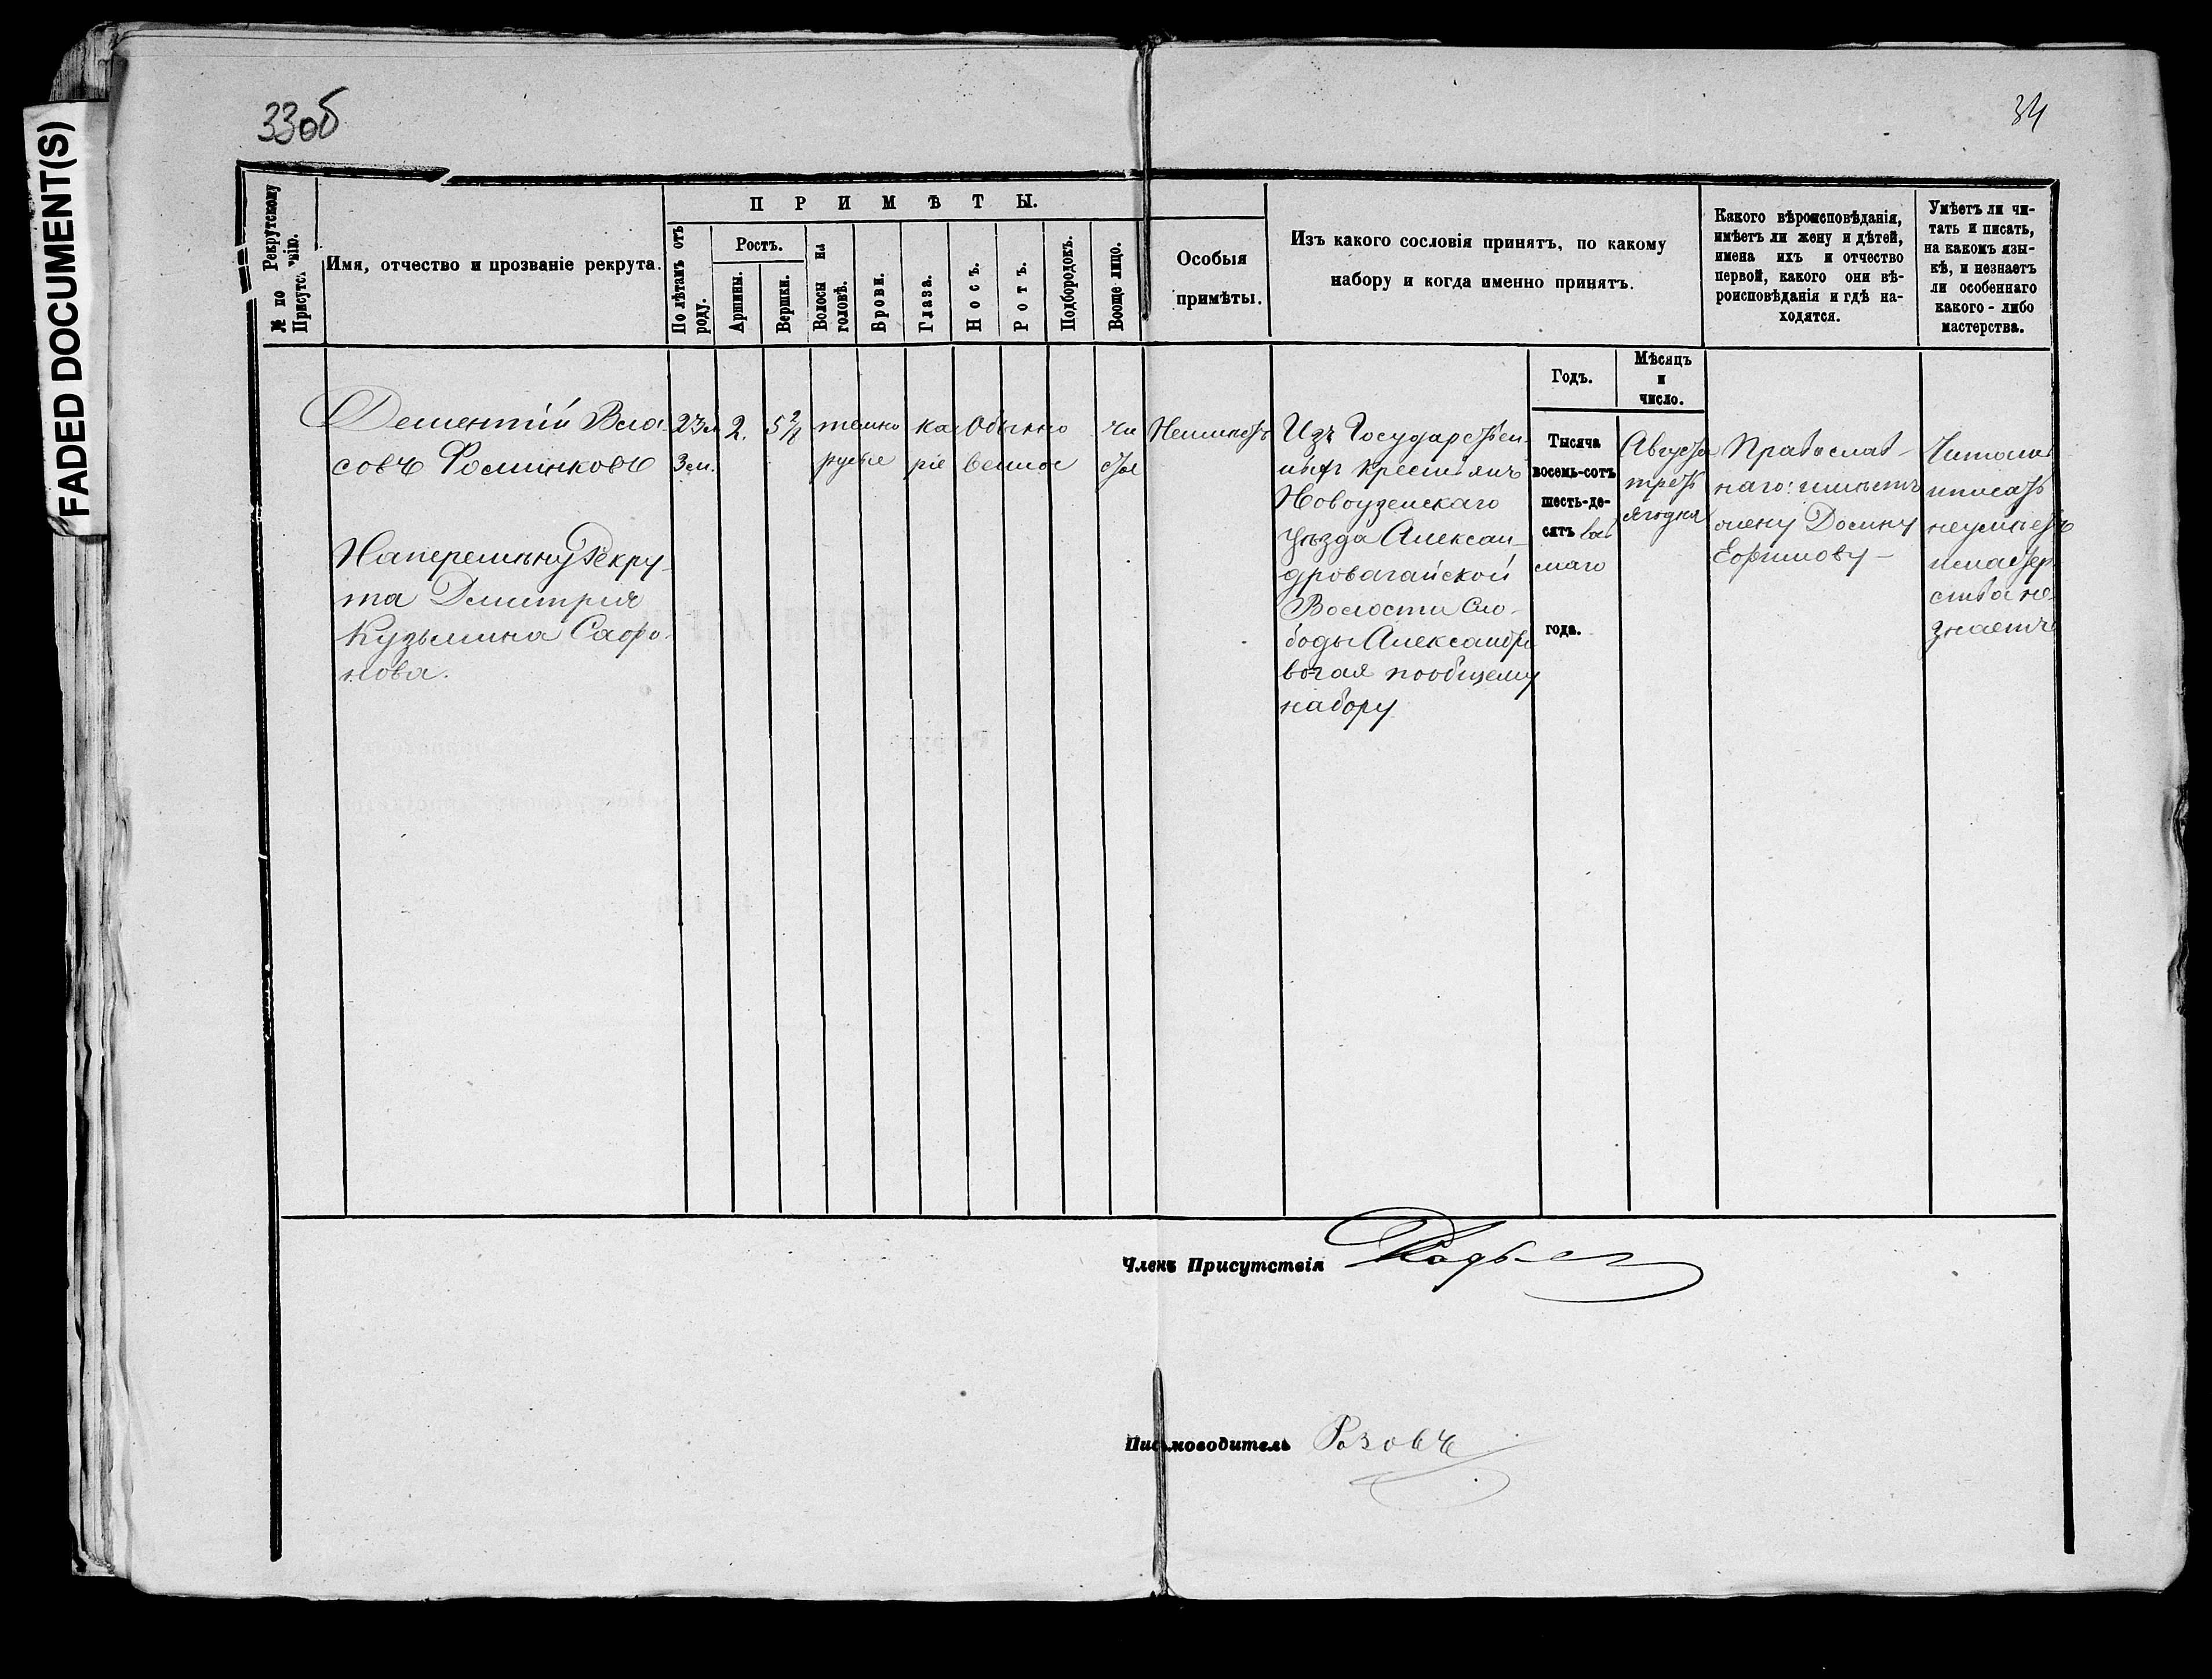 FADED DOCUMENT(S)
33об
34
№ по Рекрутскому
Присутст вію.
Имя, отчество и прозваніе рекрута.
ПРИМѢТЫ.
По лѣтамъ отъ
роду.
Ростъ.
Аршины.
Вершки.
Волосы на
головѣ.
Брови.
Глаза.
Носъ.
Ротъ.
Подбородокъ.
Вооще лицо.
Особыя
примѣты.
Изъ какого сословія принятъ, по какому
набору и когда именно принятъ.
Какого вѣроисповѣданія,
имѣетъ ли жену и дѣтей,
имена ихъ и отчество
первой, какого они вѣ-
роисповѣданія и гдѣ на-
ходятся.
Умѣетъ ли чи-
тать и писать,
на какомъ язы-
кѣ, и незнаетъ
ли особеннаго
какого-либо
мастерства.
Годъ.
Мѣсяцъ
и
число.
Дементій Вла-
совъ Фоминковъ
Наперемѣну Рекру-
та Дмитрія
Кузьмина Сафо-
нова.
23 л
3 м.
2.
5 2/4
темно
русыя
ка
ріе
Обыкно
венное
чи
стое
Неимѣетъ
Изъ Государствен-
ныхъ крестьянъ
Новоузенскаго
Уѣзда Алексан-
дровагайской
Волости Сло-
боды Александро
вогая пообщему
набору
Тысяча
восемь-сотъ
шесть-де-
сятъ вось
маго
года.
Августа
треть
ягодня
Православ-
наго: имѣетъ
жену Домну
Ефимову -
Читать
иписать
неумѣетъ
имастер
ства не
знаетъ
Членъ Присутствія
Письмоводитель Розовъ